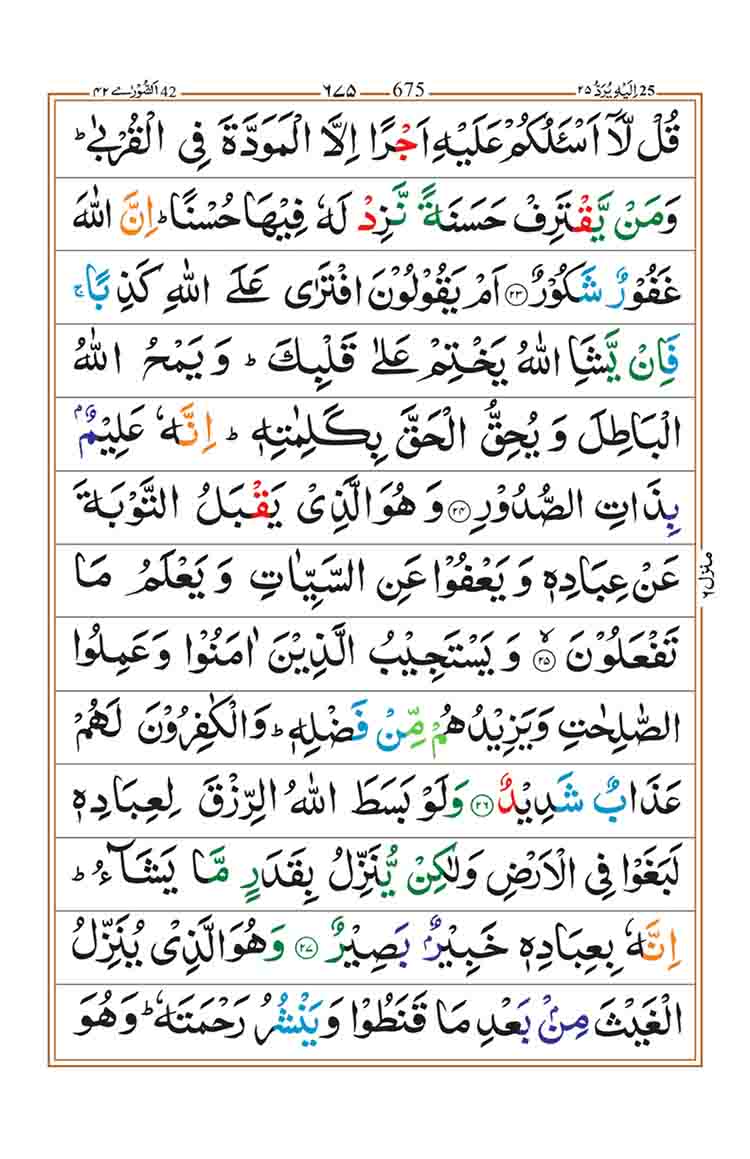 اَلشُّوْرٰى ٤٢ 42 ٦٧٥ 675 اِلَيْهِ يُرَدُّ ٢٥ 25
قُلْ لَّاۤ اَسْـَٔلُكُمْ عَلَيْهِ اَجْرًا اِلَّا الْمَوَدَّةَ فِى الْقُرْبٰىؕ
وَمَنْ يَّقْتَرِفْ حَسَنَةً نَّزِدْ لَهٗ فِيْهَا حُسْنًاؕ اِنَّ اللّٰهَ
غَفُوْرٌ شَكُوْرٌ ﴿۲۳﴾ اَمْ يَقُوْلُوْنَ افْتَرٰى عَلَى اللّٰهِ كَذِبًاۚ
فَاِنْ يَّشَاِ اللّٰهُ يَخْتِمْ عَلٰى قَلْبِكَؕ وَيَمْحُ اللّٰهُ
الْبَاطِلَ وَيُحِقُّ الْحَقَّ بِكَلِمٰتِهٖؕ اِنَّهٗ عَلِيْمٌۢ
بِذَاتِ الصُّدُوْرِ ﴿۲۴﴾ وَهُوَ الَّذِىْ يَقْبَلُ التَّوْبَةَ
عَنْ عِبَادِهٖ وَيَعْفُوْا عَنِ السَّيِّاٰتِ وَيَعْلَمُ مَا
تَفْعَلُوْنَۙ ﴿۲۵﴾ وَيَسْتَجِيْبُ الَّذِيْنَ اٰمَنُوْا وَعَمِلُوا
الصّٰلِحٰتِ وَيَزِيْدُهُمْ مِّنْ فَضْلِهٖؕ وَالْكٰفِرُوْنَ لَهُمْ
عَذَابٌ شَدِيْدٌ ﴿۲۶﴾ وَلَوْ بَسَطَ اللّٰهُ الرِّزْقَ لِعِبَادِهٖ
لَبَغَوْا فِى الْاَرْضِ وَلٰكِنْ يُّنَزِّلُ بِقَدَرٍ مَّا يَشَآءُؕ
اِنَّهٗ بِعِبَادِهٖ خَبِيْرٌۢ بَصِيْرٌ ﴿۲۷﴾ وَهُوَ الَّذِىْ يُنَزِّلُ
الْغَيْثَ مِنْۢ بَعْدِ مَا قَنَطُوْا وَيَنْشُرُ رَحْمَتَهٗؕ وَهُوَ
منزل ٦